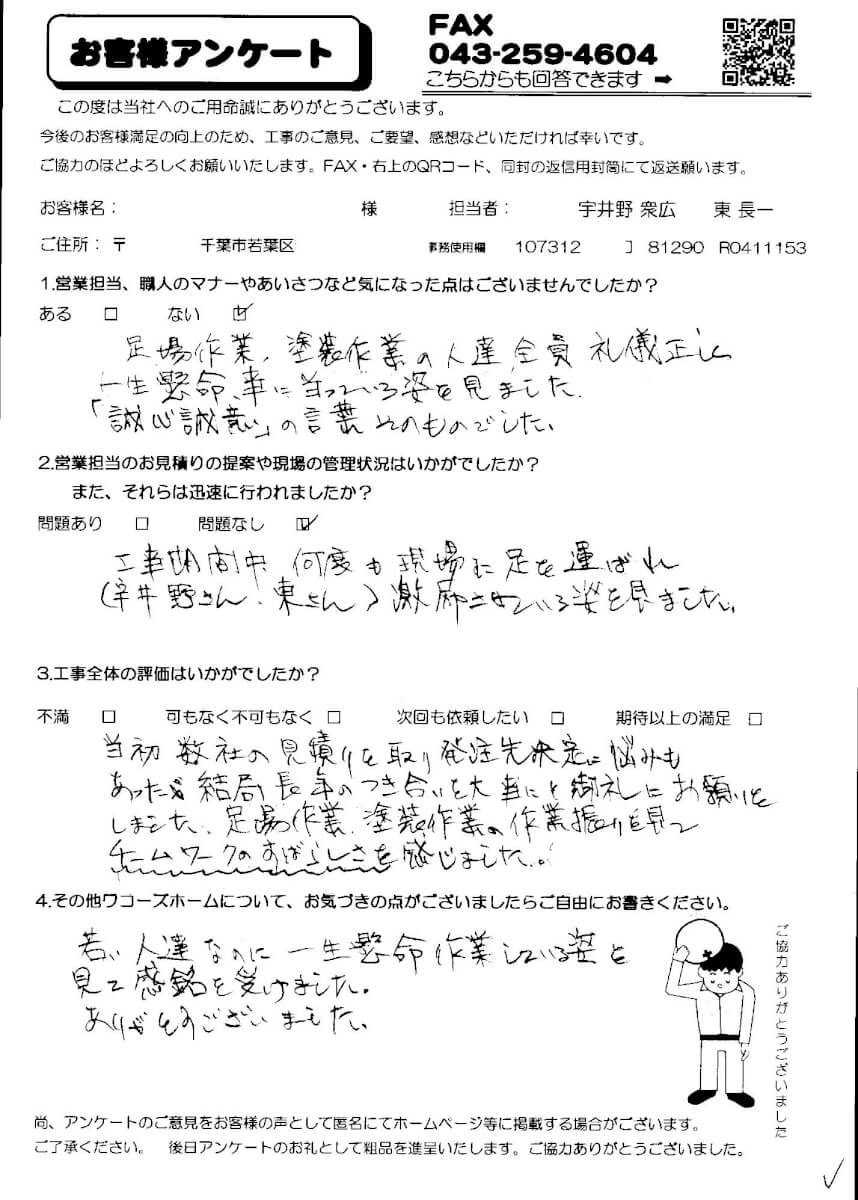 お客様アンケート
FAX
043-259-4604
こちらからも回答できます ➡
この度は当社へのご用命誠にありがとうございます。
今後のお客様満足の向上のため、工事のご意見、ご要望、感想などいただければ幸いです。
ご協力のほどよろしくお願いいたします。FAX・右上のQRコード、同封の返信用封筒にて返送願います。
お客様名： 様 担当者： 宇井野 衆広 東 長一
ご住所：〒 千葉市若葉区 事務使用欄 107312 】 81290 R0411153
1.営業担当、職人のマナーやあいさつなど気になった点はございませんでしたか？
ある □ ない ☑
足場作業、塗装作業の人達全員礼儀正しく
一生懸命、事に当っている姿を見ました。
「誠心誠意」の言葉そのものでした。
2.営業担当のお見積りの提案や現場の管理状況はいかがでしたか？
また、それらは迅速に行われましたか？
問題あり □ 問題なし ☑
工事期間中 何度も現場に足を運ばれ
(宇井野さん、東さん)激励させている姿を見ました。
3.工事全体の評価はいかがでしたか？
不満 □ 可もなく不可もなく □ 次回も依頼したい □ 期待以上の満足 □
当初数社の見積りを取り発注先決定に悩みも
あったが結局長年のつき合いを大事にと御礼にお願いを
しました。足場作業、塗装作業の作業振りを見て
チームワークのすばらしさを感じました。
4.その他ワコーズホームについて、お気づきの点がございましたらご自由にお書きください。
若い人達なのに一生懸命作業している姿を
見て感銘を受けました。
ありがとうございました。
ご協力ありがとうございました
尚、アンケートのご意見をお客様の声として匿名にてホームページ等に掲載する場合がございます。
ご了承ください。 後日アンケートのお礼として粗品を進呈いたします。ご協力ありがとうございました。